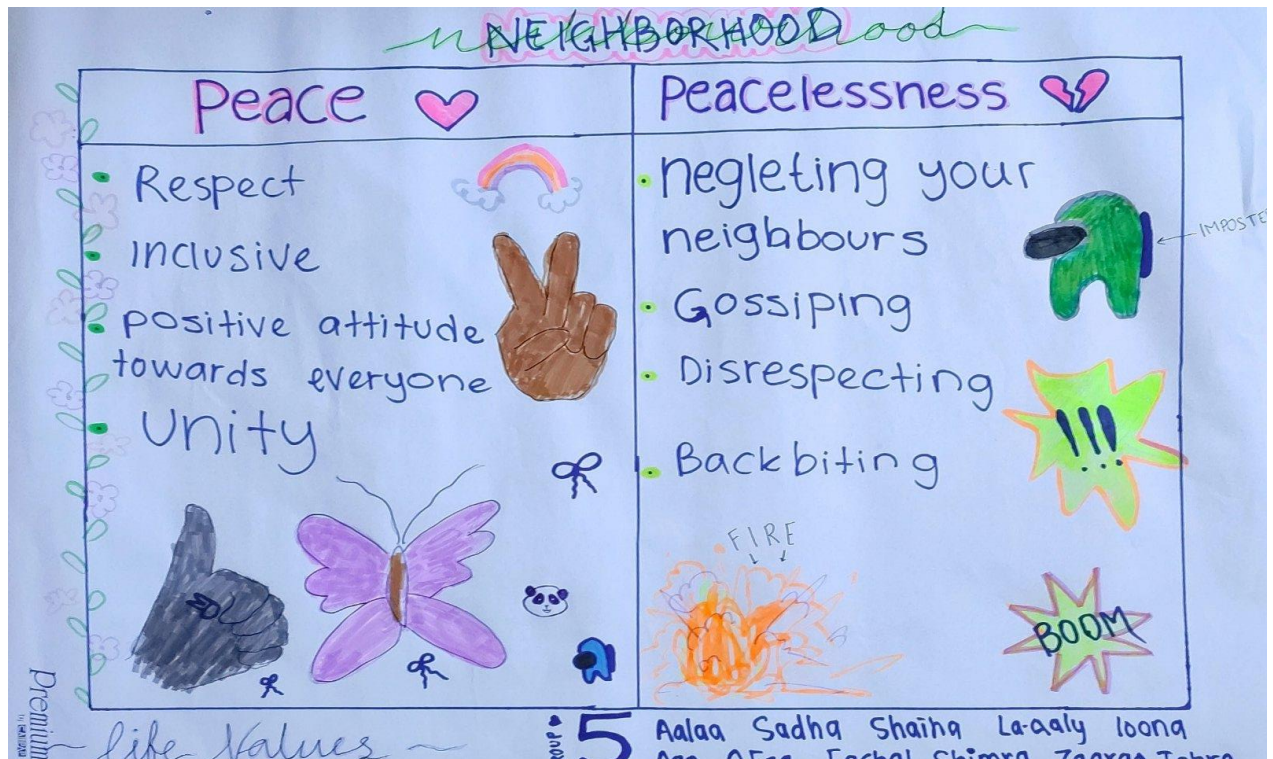 NEIGHBORHOOD
Peace
Respect
Inclusive
positive attitude
towards everyone
Unity
Peacelessness
negleting your
neighbours
Gossiping
Disrespecting
Backbiting
IMPOSTE
!!!
FIRE
BOOM
Premium
Life Values
5
Aalaa Sadha Shaiha La-aaly loona